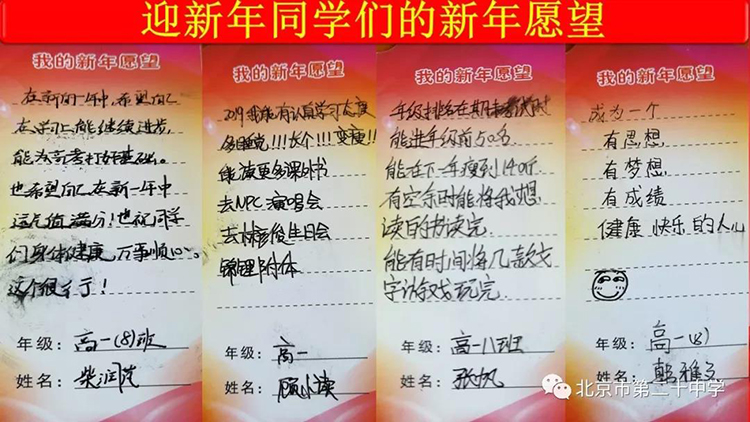 迎新年同学们的新年愿望
我的新年愿望
在新的一年中,希望自己
在学习上能继续进步,
能为高考打好基础。
也希望自己在新一年中
颜值满分!也祝同学
们身体健康 万事顺心。
这个很关了!
年级:高一(8)班
姓名:柴润
我的新年愿望
2019我能有认真学习态度
多睡觉!!!长个!!!变瘦!!!
能读更多课外书
去NPC演唱会
去林俊杰生日会
锦鲤附体
年级:高一
姓名:顾小读
我的新年愿望
年级排名在期末考试时
能进年级前50名
能在下一年瘦到140斤
有空余时能将我想
读的书读完
能有时间将几款文
字游戏玩完
年级:高一八班
姓名:张帆
我的新年愿望
成为一个
有思想
有梦想
有成绩
健康 快乐的人儿
年级:高一(8)
姓名:韩雅文
北京市第二十中学